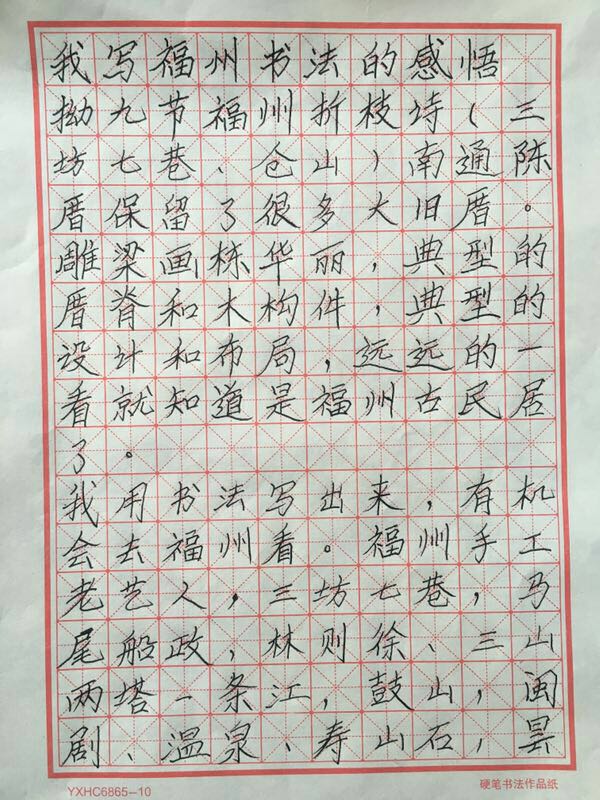 我写福州书法的感悟
拗九节福州折枝诗（三
坊七巷、仓山）南通陈
厝保留了很多大旧厝。
雕梁画栋华丽，典型的
厝脊和木构件，典型的
设计和布局，远远的一
看就知道是福州古民居
了。
我用书法写出来，有机
会去福州看。福州手工
老艺人，三坊七巷，马
尾船政，林则徐、三山
两塔一条江，鼓山，闽
剧、温泉、寿山石，昙
YXHC6865-10 硬笔书法作品纸